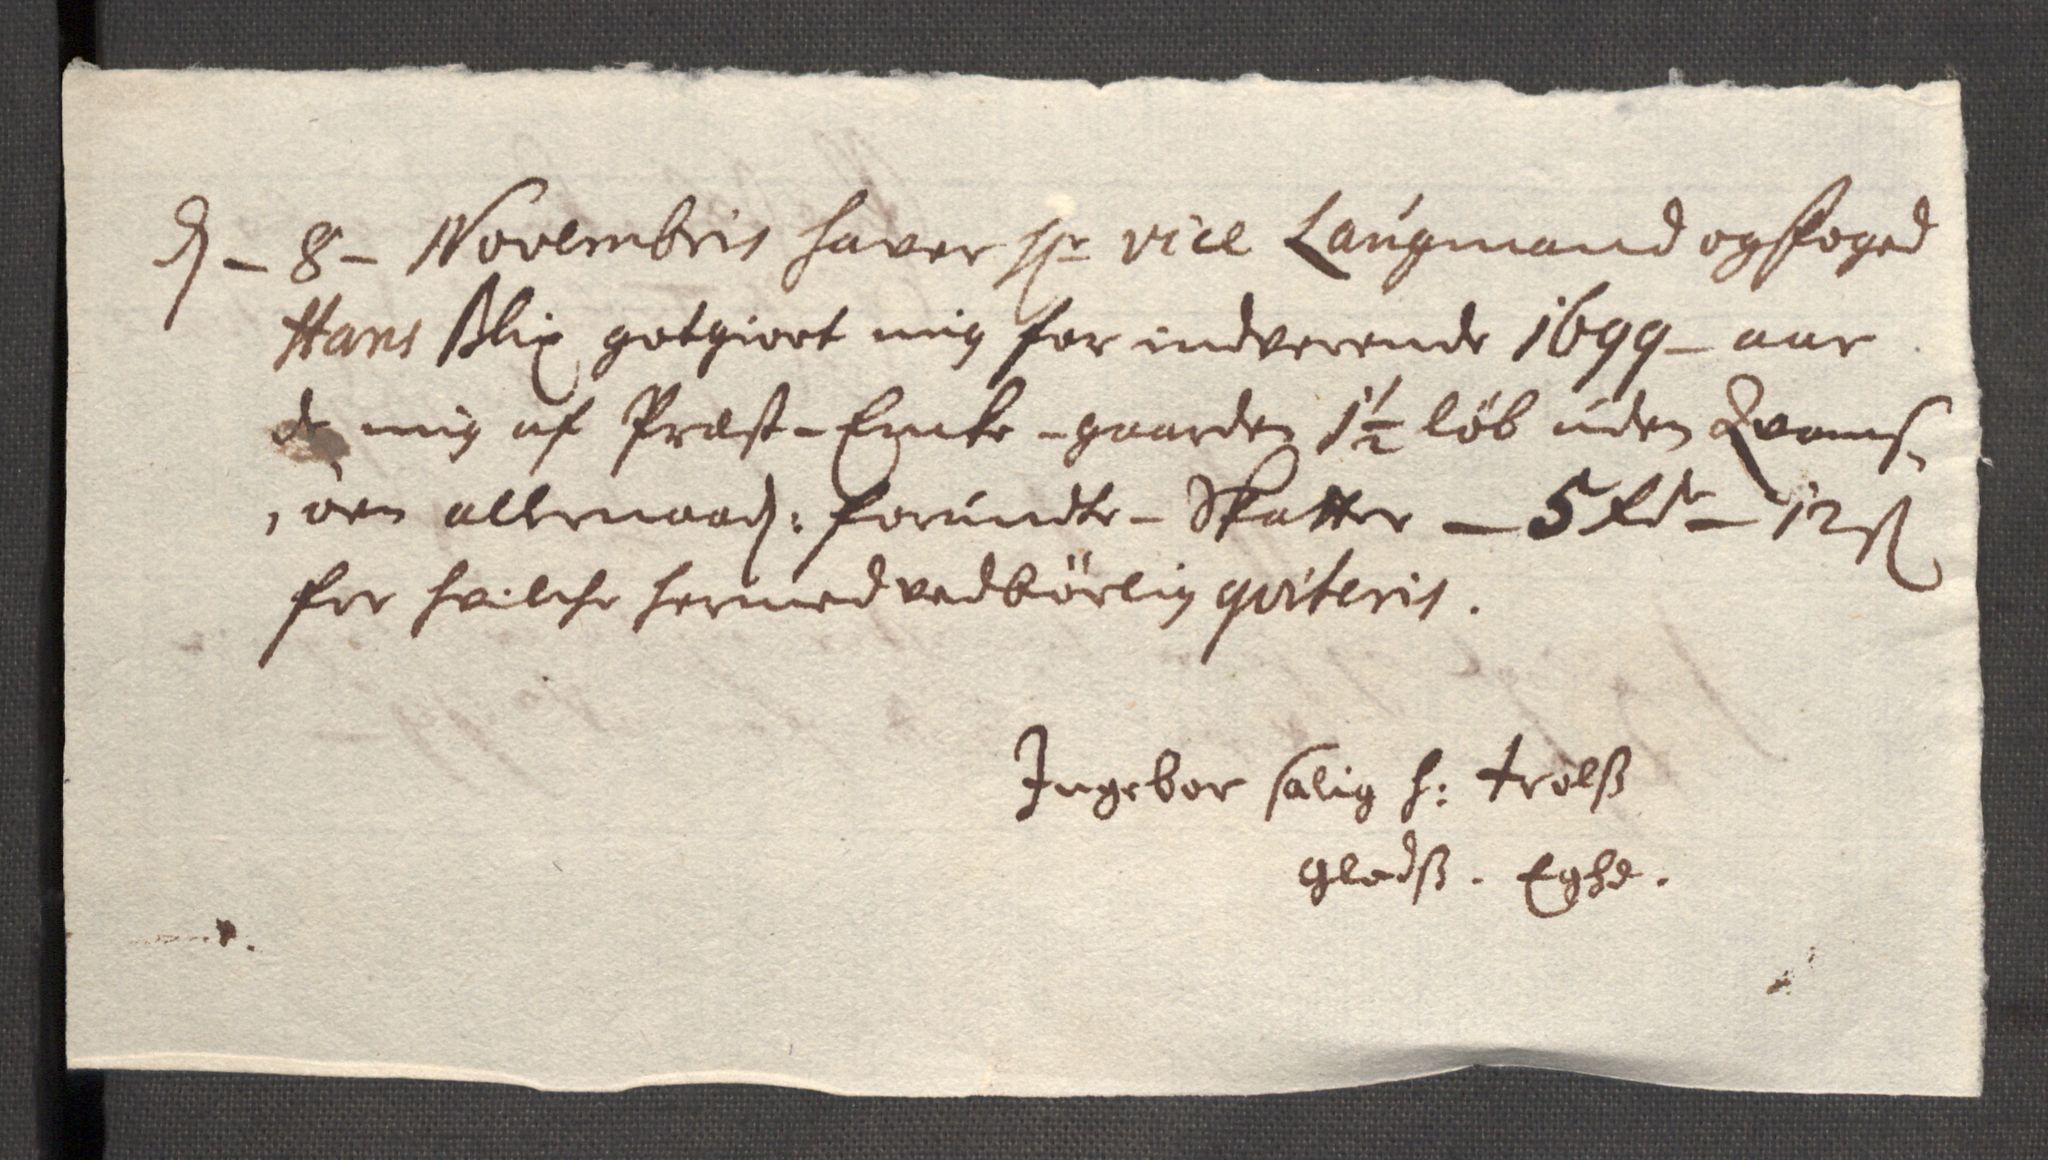 d – 8 – Novembris haver Hr vice Laugmand og foged
Hans Blix gotgiort mig for indverende 1699 – aar
de mig af Præst – Encke – gaarden 1½ löb uden Qvams
öen allernaad: forundte – Skatter – 5 Rdr – 12 ß
for hvilche hermed vedbörlig qviteris.
Ingebor salig h: trolß
gladß . Eghe .